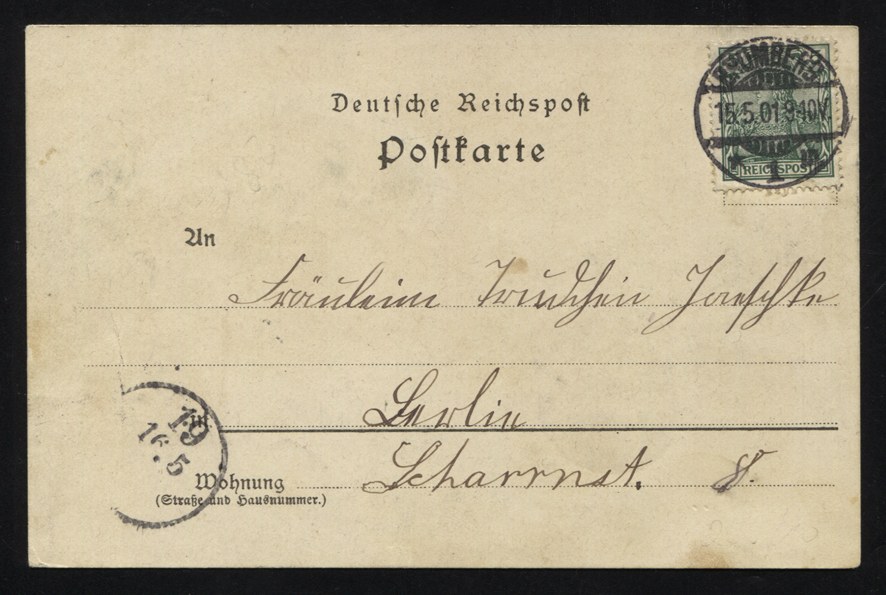 Deutsche Reichspost
Postkarte
BROMBERG
15.5.01 9-10V.
* 1 m
REICHSPOST
An
Fräulein Trudchen Jaeschke
in Berlin
19
16.5
Wohnung Scharrnst. 8.
(Straße und Hausnummer.)